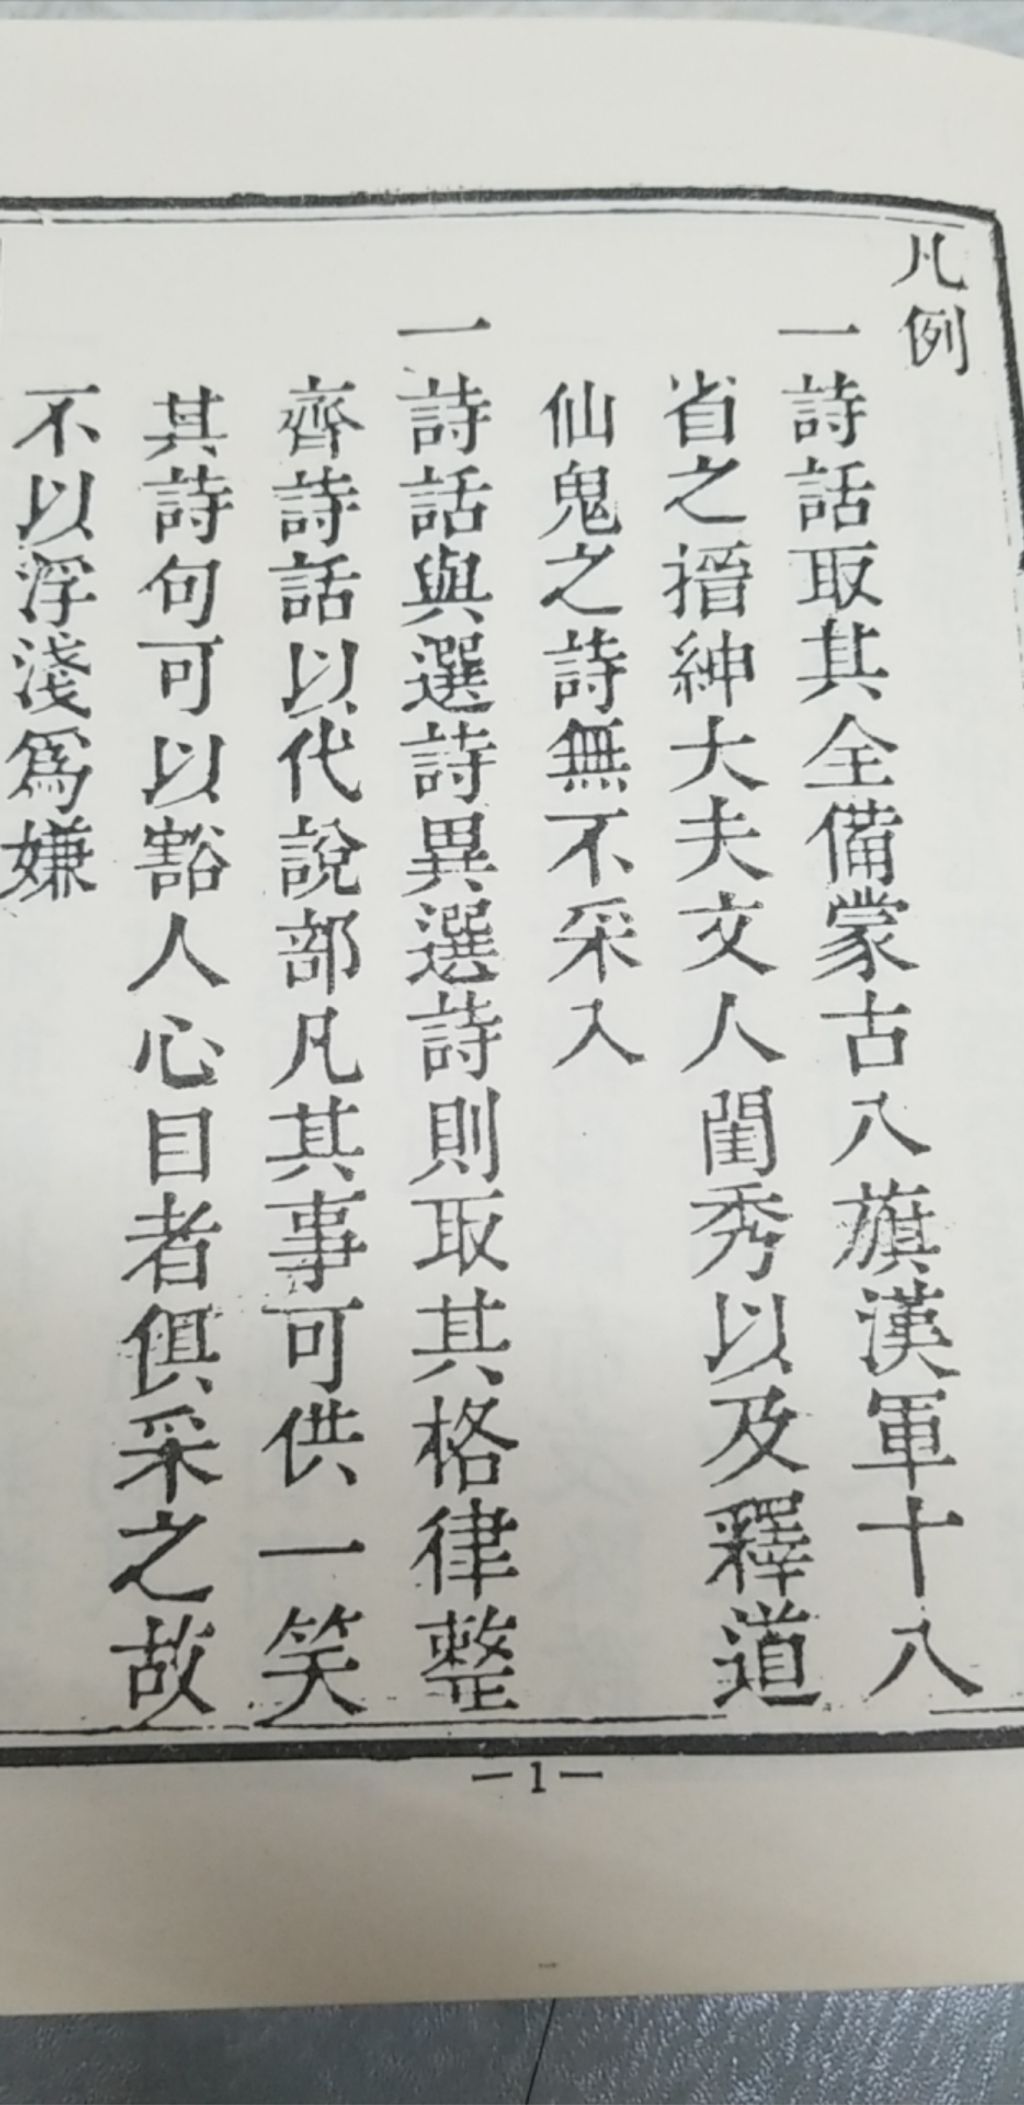 凡例
一詩話取其全備蒙古八旗漢軍十八
省之搢紳大夫文人閨秀以及釋道
仙鬼之詩無不采入
一詩話與選詩異選詩則取其格律整
齊詩話以代說部凡其事可供一笑
其詩句可以豁人心目者俱采之故
不以浮淺爲嫌
—1—